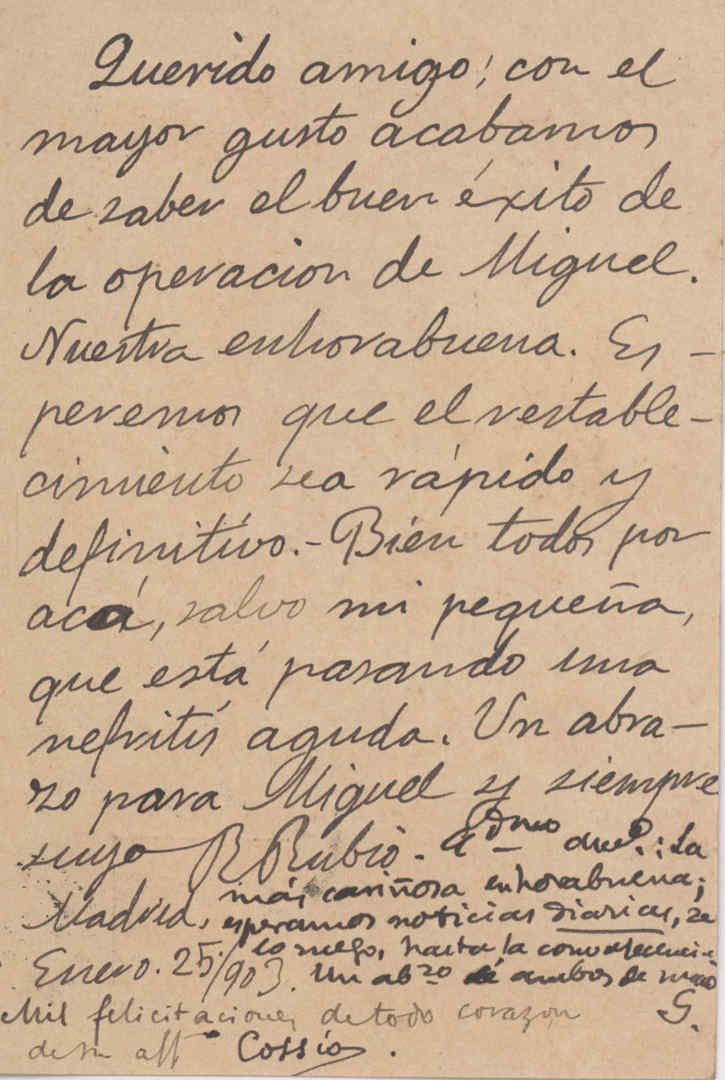 Querido amigo; con el
mayor gusto acabamos
de saber el buen éxito de
la operacion de Miguel.
Nuestra enhorabuena. Es-
peremos que el restable-
cimiento sea rápido y
definitivo.- Bien todos por
acá, salvo mi pequeña,
que está pasando una
nefritis aguda. Un abra-
zo para Miguel y siempre
suyo R Rubio.
Madrid,
Enero. 25/903.
que.: La
más cariñosa enhorabuena;
esperamos noticias diarias, se
lo ruego, hasta la convalecencia
Un abzo de ambos de
G.
Mil felicitaciones de todo corazon
de su afmo Cossío.